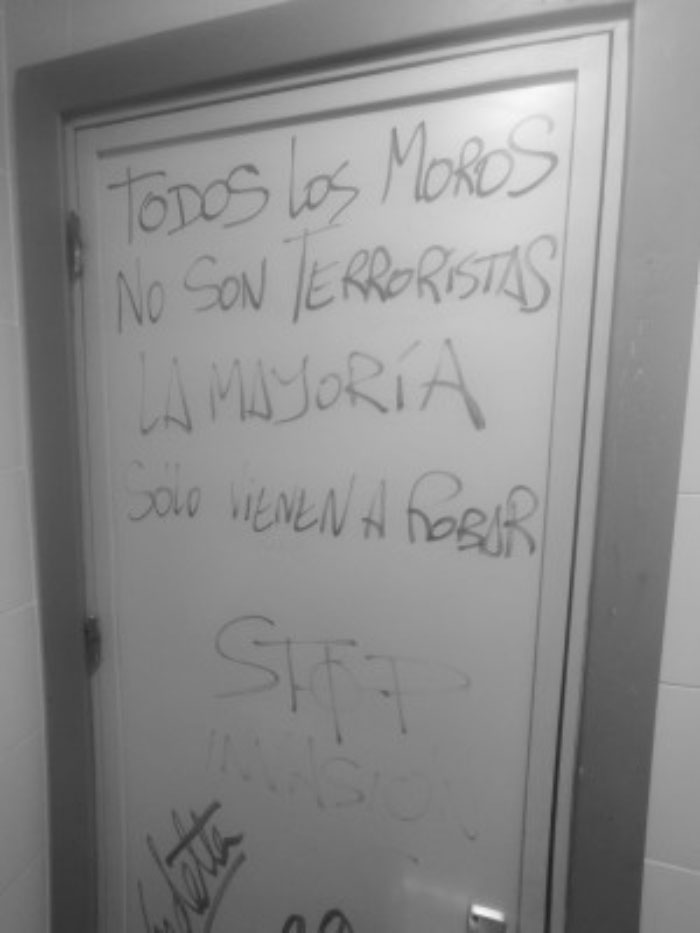 TODOS LOS MOROS
NO SON TERRORISTAS
LA MAYORÍA
SÓLO VIENEN A ROBAR
STOP
INVASIÓN